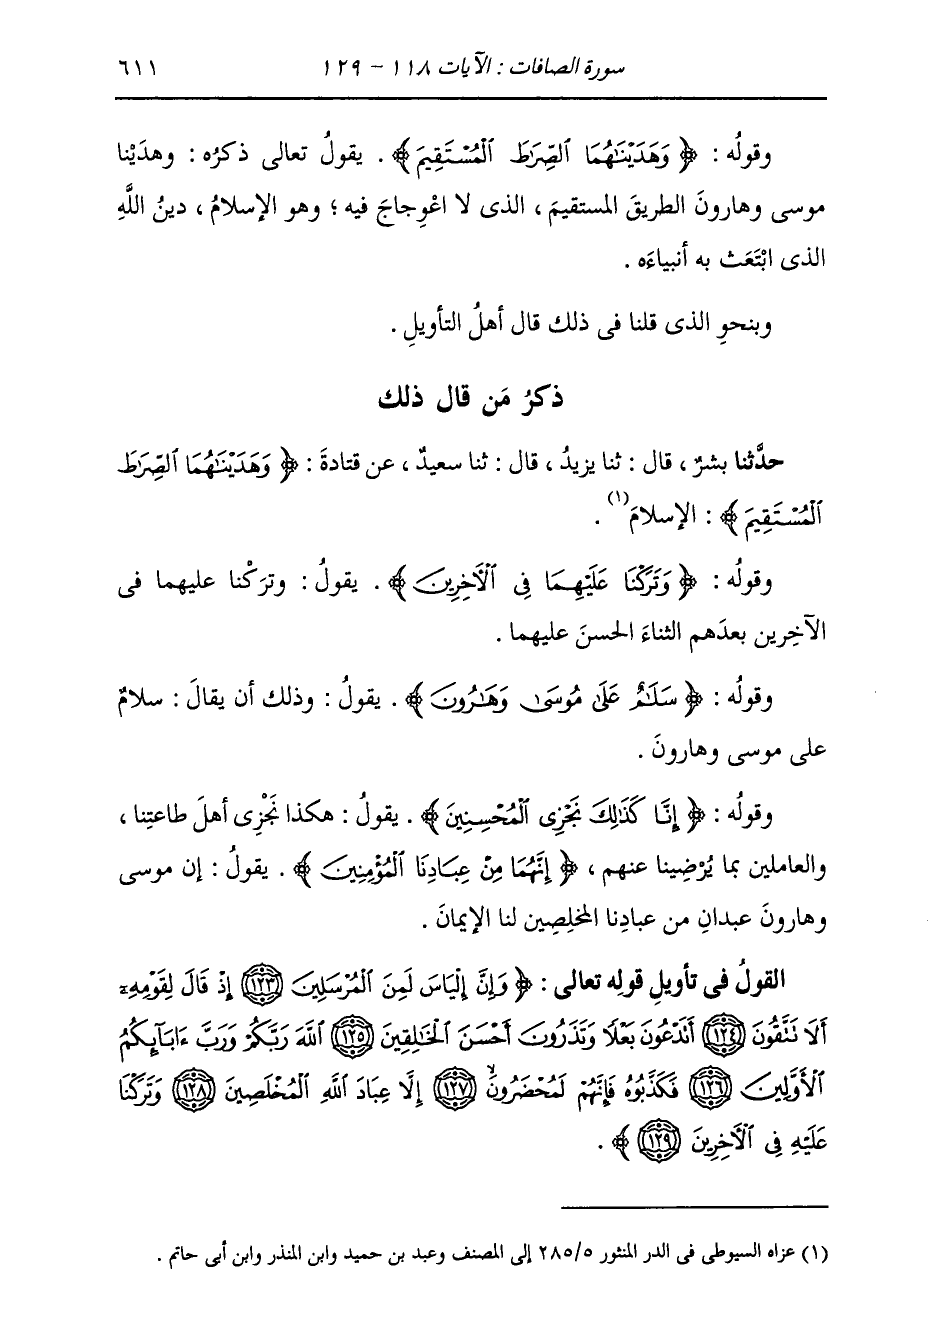 سورة الصافات : الآيات ١١٨ - ١٢٩ ٦١١
وقولُه : ﴿ وَهَدَيْنَٰهُمَا ٱلصِّرَٰطَ ٱلْمُسْتَقِيمَ ﴾ . يقولُ تعالى ذكرُه : وهدَيْنا
موسى وهارونَ الطريقَ المستقيمَ ، الذى لا اعْوِجاجَ فيه ؛ وهو الإسلامُ ، دينُ اللَّهِ
الذى ابْتَعَث به أنبياءَه .
وبنحوِ الذى قلنا فى ذلك قال أهلُ التأويلِ .
ذكرُ مَن قال ذلك
حدَّثنا بشرٌ ، قال : ثنا يزيدُ ، قال : ثنا سعيدٌ ، عن قتادةَ : ﴿ وَهَدَيْنَٰهُمَا ٱلصِّرَٰطَ
ٱلْمُسْتَقِيمَ ﴾ : الإسلامَ(١) .
وقولُه : ﴿ وَتَرَكْنَا عَلَيْهِمَا فِى ٱلْأَخِرِينَ ﴾ . يقولُ : وتركْنا عليهما فى
الآخِرين بعدَهم الثناءَ الحسنَ عليهما .
وقولُه : ﴿ سَلَٰمٌ عَلَىٰ مُوسَىٰ وَهَٰرُونَ ﴾ . يقولُ : وذلك أن يقالَ : سلامٌ
على موسى وهارونَ .
وقولُه : ﴿ إِنَّا كَذَٰلِكَ نَجْزِى ٱلْمُحْسِنِينَ ﴾ . يقولُ : هكذا نَجْزِى أهلَ طاعتِنا ،
والعاملين بما يُرْضِينا عنهم ، ﴿ إِنَّهُمَا مِنْ عِبَادِنَا ٱلْمُؤْمِنِينَ ﴾ . يقولُ : إن موسى
وهارونَ عبدانِ من عبادِنا المخلِصِين لنا الإيمانَ .
القولُ فى تأويلِ قولِه تعالى : ﴿ وَإِنَّ إِلْيَاسَ لَمِنَ ٱلْمُرْسَلِينَ ١٢٣ إِذْ قَالَ لِقَوْمِهِۦٓ
أَلَا تَتَّقُونَ ١٢٤ أَتَدْعُونَ بَعْلًا وَتَذَرُونَ أَحْسَنَ ٱلْخَٰلِقِينَ ١٢٥ ٱللَّهَ رَبَّكُمْ وَرَبَّ ءَابَآئِكُمُ
ٱلْأَوَّلِينَ ١٢٦ فَكَذَّبُوهُ فَإِنَّهُمْ لَمُحْضَرُونَ ١٢٧ إِلَّا عِبَادَ ٱللَّهِ ٱلْمُخْلَصِينَ ١٢٨ وَتَرَكْنَا
عَلَيْهِ فِى ٱلْأَخِرِينَ ١٢٩ ﴾ .
(١) عزاه السيوطى فى الدر المنثور ٢٨٥/٥ إلى المصنف وعبد بن حميد وابن المنذر وابن أبى حاتم .